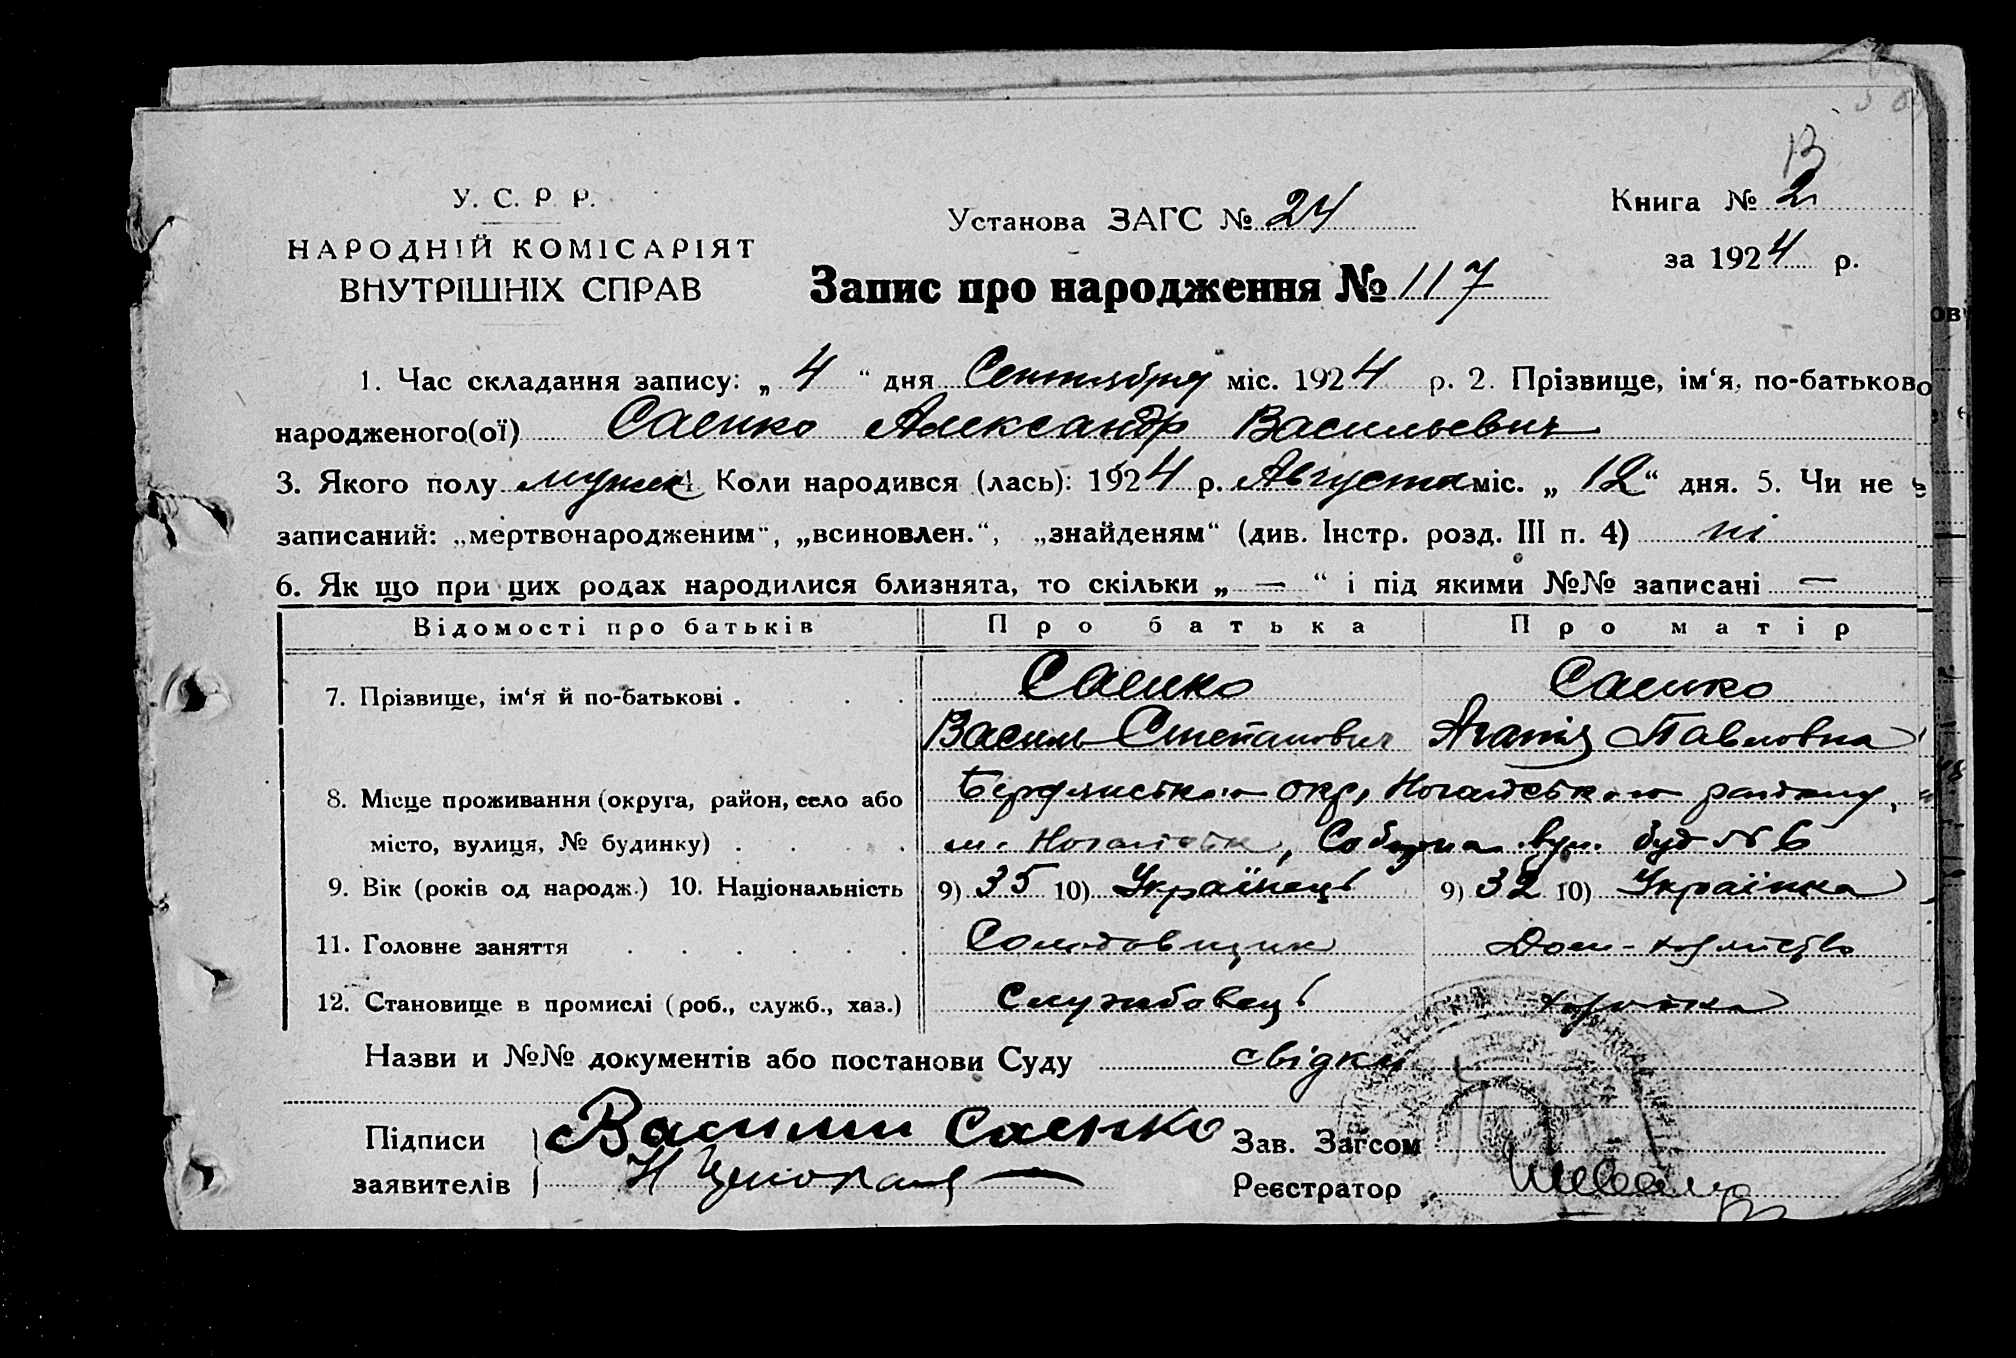 В
У. С. Р. Р.
НАРОДНІЙ КОМІСАРІЯТ
ВНУТРІШНІХ СПРАВ
Установа ЗАГС № 24
Книга № 2
за 1924 р.
Запис про народження № 117
1. Час складання запису: „ 4 “ дня Сентября міс. 1924 р. 2. Прізвище, ім‘я, по-батьково
народженого(ої) Саенко Александр Васильевич
3. Якого полу мужск 4. Коли народився (лась): 1924 р. Августа міс. „ 12 “ дня. 5. Чи не є
записаний: „мертвонародженим“, „всиновлен.“, „знайденям“ (див. Інстр. розд. III п. 4) ні
6. Як що при цих родах народилися близнята, то скільки „ — “ і під якими №№ записані —
Відомості про батьків Про батька Про матір
7. Прізвище, ім‘я й по-батькові . . . . Саенко Саенко
Василь Степанович Агапія Павловна
8. Місце проживання (округа, район, село або Бердянською окр, Ногайського району,
місто, вулиця, № будинку) . . . . м. Ногайськ, Соборна вул. буд № 6
9. Вік (років од народж.) 10. Національність 9) 35 10) Українець 9) 32 10) Українка
11. Головне заняття . . . . . . Дом-хозяйство
12. Становище в промислі (роб., служб., хаз.) Службовець хозяйка
Назви и №№ документів або постанови Суду свідки
Підписи Василий Саенко Зав. Загсом
заявителів Н Реєстратор